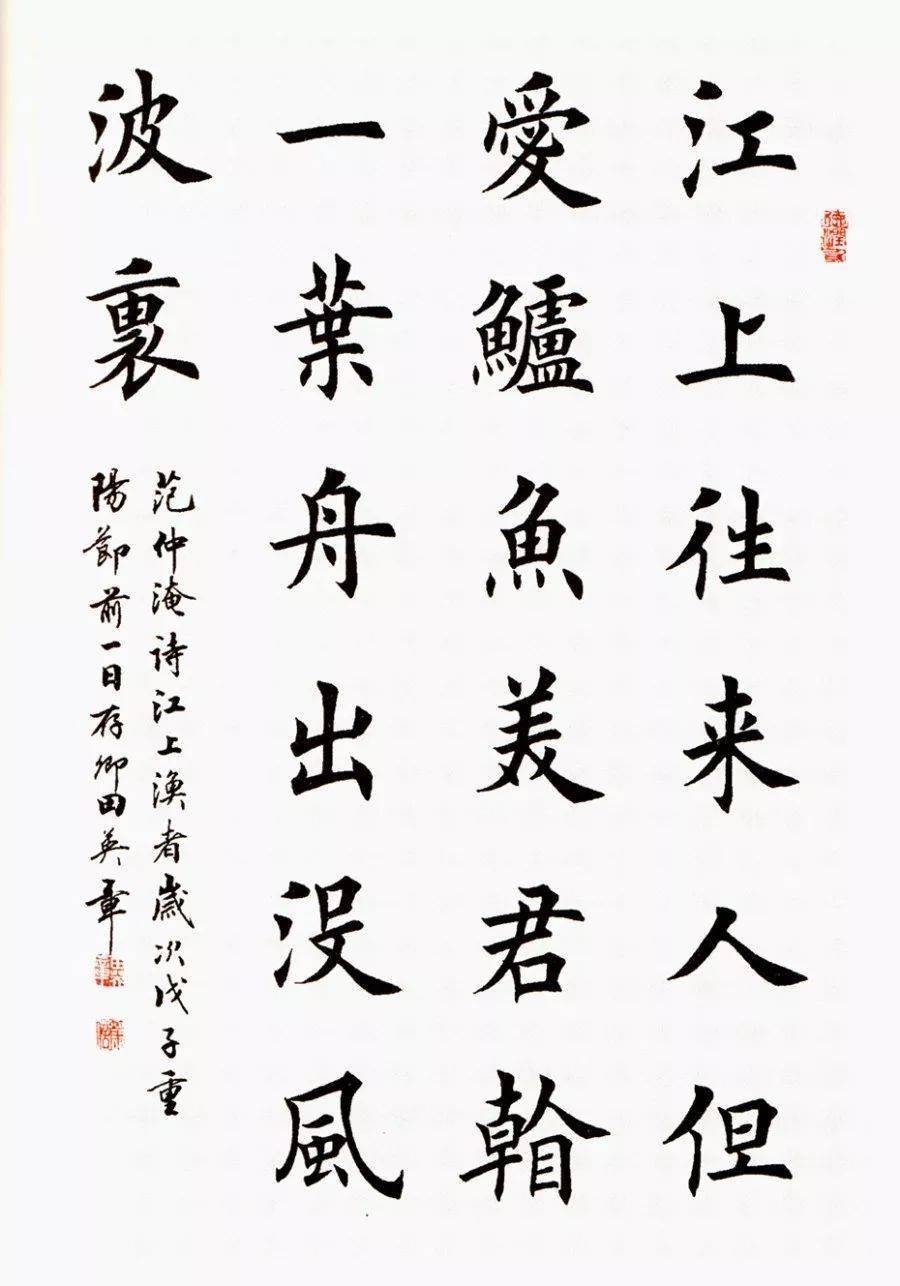 江上往来人但
愛鱸魚美君看
一葉舟出没風
波裏
范仲淹诗江上渔者歲次戊子重
陽節前一日存卿田英章